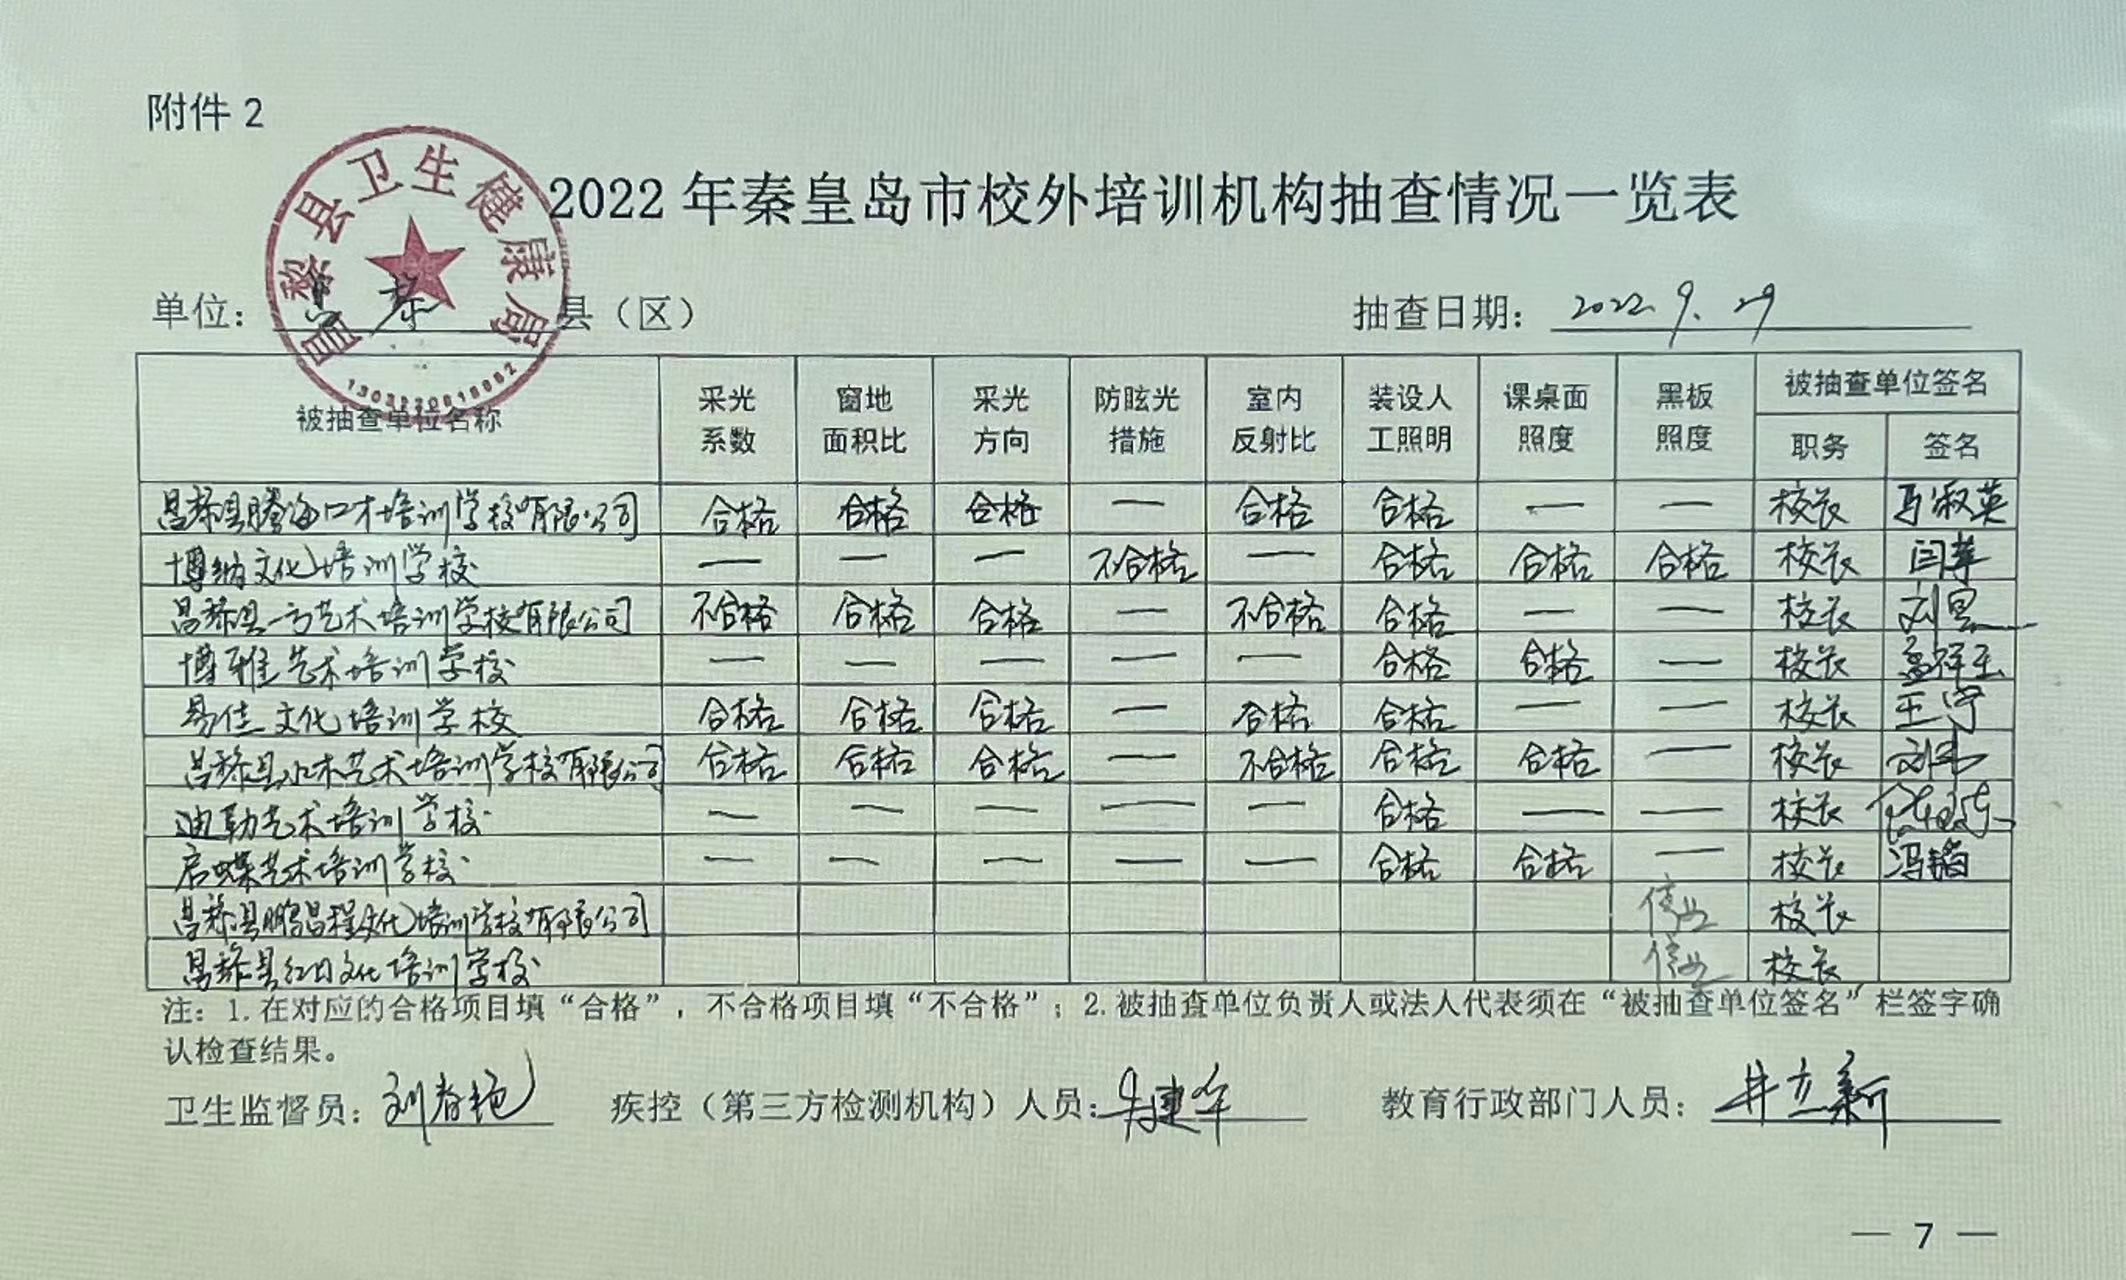 附件 2
昌黎县卫生健康局
2022 年秦皇岛市校外培训机构抽查情况一览表
单位： 昌黎 县（区） 抽查日期： 2022.9.29
被抽查单位名称 采光系数 窗地面积比 采光方向 防眩光措施 室内反射比 装设人工照明 课桌面照度 黑板照度 被抽查单位签名
职务 签名
昌黎县腾海口才培训学校有限公司 合格 合格 合格 — 合格 合格 — — 校长 马淑英
博纳文化培训学校 — — — 不合格 — 合格 合格 合格 校长 闫苹
昌黎县一方艺术培训学校有限公司 不合格 合格 合格 — 不合格 合格 — — 校长 刘昱
博雅艺术培训学校 — — — — — 合格 合格 — 校长 孟祥玉
易佳文化培训学校 合格 合格 合格 — 合格 合格 — — 校长 王宁
昌黎县水木艺术培训学校有限公司 合格 合格 合格 — 不合格 合格 合格 — 校长 刘伟
迪勒艺术培训学校 — — — — — 合格 — — 校长
启蝶艺术培训学校 — — — — — 合格 合格 — 校长
昌黎县鹏昌程文化培训学校有限公司 停业 校长
昌黎县红日文化培训学校 停业 校长
注：1.在对应的合格项目填“合格”，不合格项目填“不合格”；2.被抽查单位负责人或法人代表须在“被抽查单位签名”栏签字确
认检查结果。
卫生监督员： 刘春艳 疾控（第三方检测机构）人员： 建华 教育行政部门人员： 井立新
— 7 —